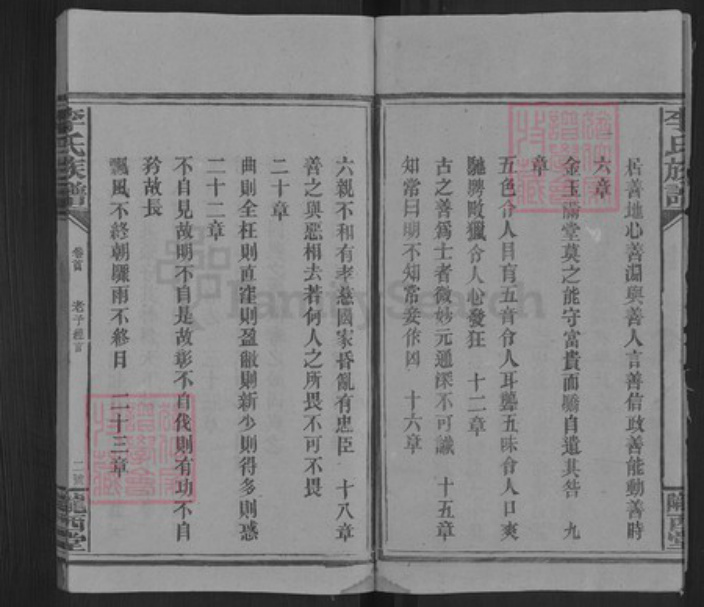 李氏族譜
隴西堂
居善地心善淵與善人言善信政善能動善時
六章
金玉滿堂莫之能守富貴而驕自遺其咎　九
章
五色令人目盲五音令人耳聾五味令人口爽
馳騁畋獵令人心發狂　十二章
古之善爲士者微妙元通深不可識　十五章
知常曰明不知常妄作凶　十六章
六親不和有孝慈國家昏亂有忠臣　十八章
善之與惡相去若何人之所畏不可不畏
二十章
曲則全枉則直窪則盈敝則新少則得多則惑
二十二章
不自見故明不自是故彰不自伐則有功不自
矜故長
飄風不終朝驟雨不終日　二十三章
李氏族譜
卷首　老子經言
二號
隴西堂
FamilySearch